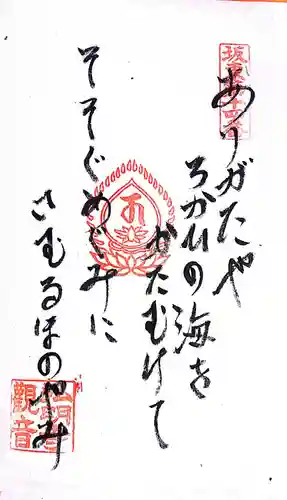 坂東第十四番
ありがたや
ちかひの海を
かたむけて
そそぐめぐみに
さむるほのやみ
弘明寺
観音